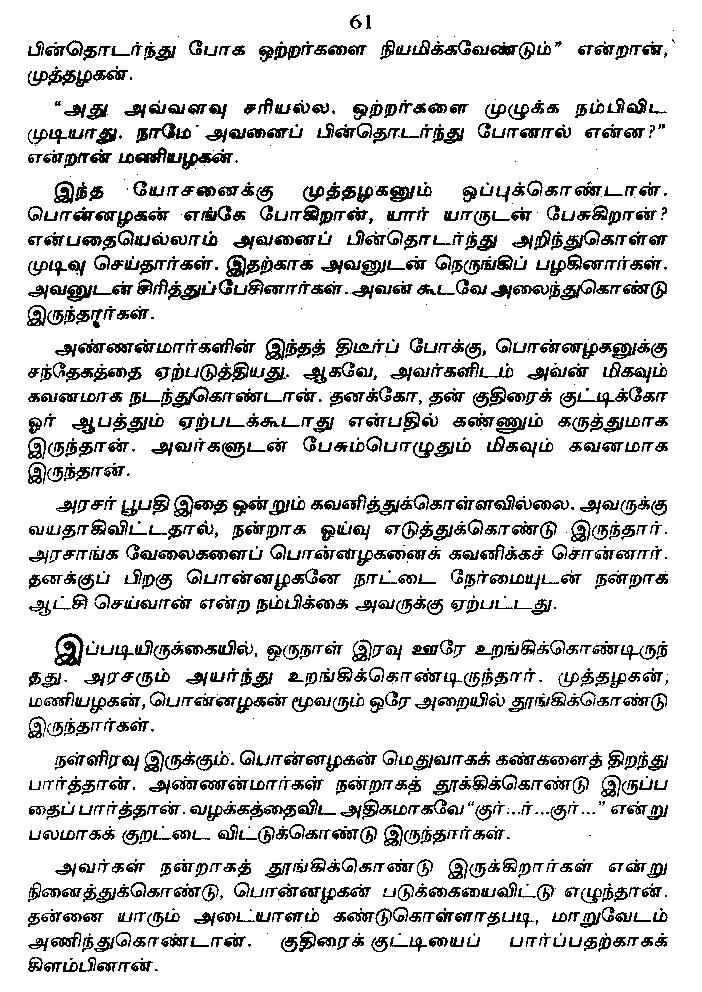 61
பின்தொடர்ந்து போக ஒற்றர்களை நியமிக்கவேண்டும்” என்றான்,
முத்தழகன்.
“அது அவ்வளவு சரியல்ல. ஒற்றர்களை முழுக்க நம்பிவிட
முடியாது. நாமே அவனைப் பின்தொடர்ந்து போனால் என்ன?”
என்றான் மணியழகன்.
இந்த யோசனைக்கு முத்தழகனும் ஒப்புக்கொண்டான்.
பொன்னழகன் எங்கே போகிறான், யார் யாருடன் பேசுகிறான்?
என்பதையெல்லாம் அவனைப் பின்தொடர்ந்து அறிந்துகொள்ள
முடிவு செய்தார்கள். இதற்காக அவனுடன் நெருங்கிப் பழகினார்கள்.
அவனுடன் சிரித்துப்பேசினார்கள். அவன் கூடவே அலைந்துகொண்டு
இருந்தார்கள்.
அண்ணன்மார்களின் இந்தத் திடீர்ப் போக்கு, பொன்னழகனுக்கு
சந்தேகத்தை ஏற்படுத்தியது. ஆகவே, அவர்களிடம் அவன் மிகவும்
கவனமாக நடந்துகொண்டான். தனக்கோ, தன் குதிரைக் குட்டிக்கோ
ஓர் ஆபத்தும் ஏற்படக்கூடாது என்பதில் கண்ணும் கருத்துமாக
இருந்தான். அவர்களுடன் பேசும்பொழுதும் மிகவும் கவனமாக
இருந்தான்.
அரசர் பூபதி இதை ஒன்றும் கவனித்துக்கொள்ளவில்லை. அவருக்கு
வயதாகிவிட்டதால், நன்றாக ஓய்வு எடுத்துக்கொண்டு இருந்தார்.
அரசாங்க வேலைகளைப் பொன்னழகனைக் கவனிக்கச் சொன்னார்.
தனக்குப் பிறகு பொன்னழகனே நாட்டை நேர்மையுடன் நன்றாக
ஆட்சி செய்வான் என்ற நம்பிக்கை அவருக்கு ஏற்பட்டது.
இப்படியிருக்கையில், ஒருநாள் இரவு ஊரே உறங்கிக்கொண்டிருந்
தது. அரசரும் அயர்ந்து உறங்கிக்கொண்டிருந்தார். முத்தழகன்,
மணியழகன், பொன்னழகன் மூவரும் ஒரே அறையில் தூங்கிக்கொண்டு
இருந்தார்கள்.
நள்ளிரவு இருக்கும். பொன்னழகன் மெதுவாகக் கண்களைத் திறந்து
பார்த்தான். அண்ணன்மார்கள் நன்றாகத் தூக்கிக்கொண்டு இருப்ப
தைப் பார்த்தான். வழக்கத்தைவிட அதிகமாகவே “குர்...ர்...குர்...” என்று
பலமாகக் குறட்டை விட்டுக்கொண்டு இருந்தார்கள்.
அவர்கள் நன்றாகத் தூங்கிக்கொண்டு இருக்கிறார்கள் என்று
நினைத்துக்கொண்டு, பொன்னழகன் படுக்கையைவிட்டு எழுந்தான்.
தன்னை யாரும் அடையாளம் கண்டுகொள்ளாதபடி, மாறுவேடம்
அணிந்துகொண்டான். குதிரைக் குட்டியைப் பார்ப்பதற்காகக்
கிளம்பினான்.